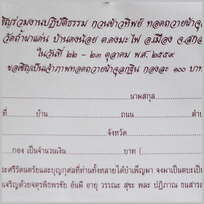 ชิญร่วมงานปฏิบัติธรรม กวนข้าวทิพย์ ทอดถวายผ้าจุล
วัดถ้ำผาแด่น บ้านดงน้อย ต.ดงมะไฟ อ.เมือง จ.สกล
ในวันที่ ๒๒ - ๒๓ ตุลาคม พ.ศ. ๒๕๕๙
ขอเชิญเป็นเจ้าภาพทอดถวายผ้าจุลกฐิน กองละ ๑๐๐ บาท
นามสกุล
ที่ บ้าน ถนน ตำ
จังหวัด
กอง เป็นจำนวนเงิน บาท (
ะศรีรัตนตรัยและบุญกุศลที่ท่านทั้งหลายได้บำเพ็ญมา จงมาเป็นตบะเดช
เจริญด้วยจตุรพิธพรชัย อันมี อายุ วรรณะ สุขะ พละ ปฏิภาณ ธนสาร